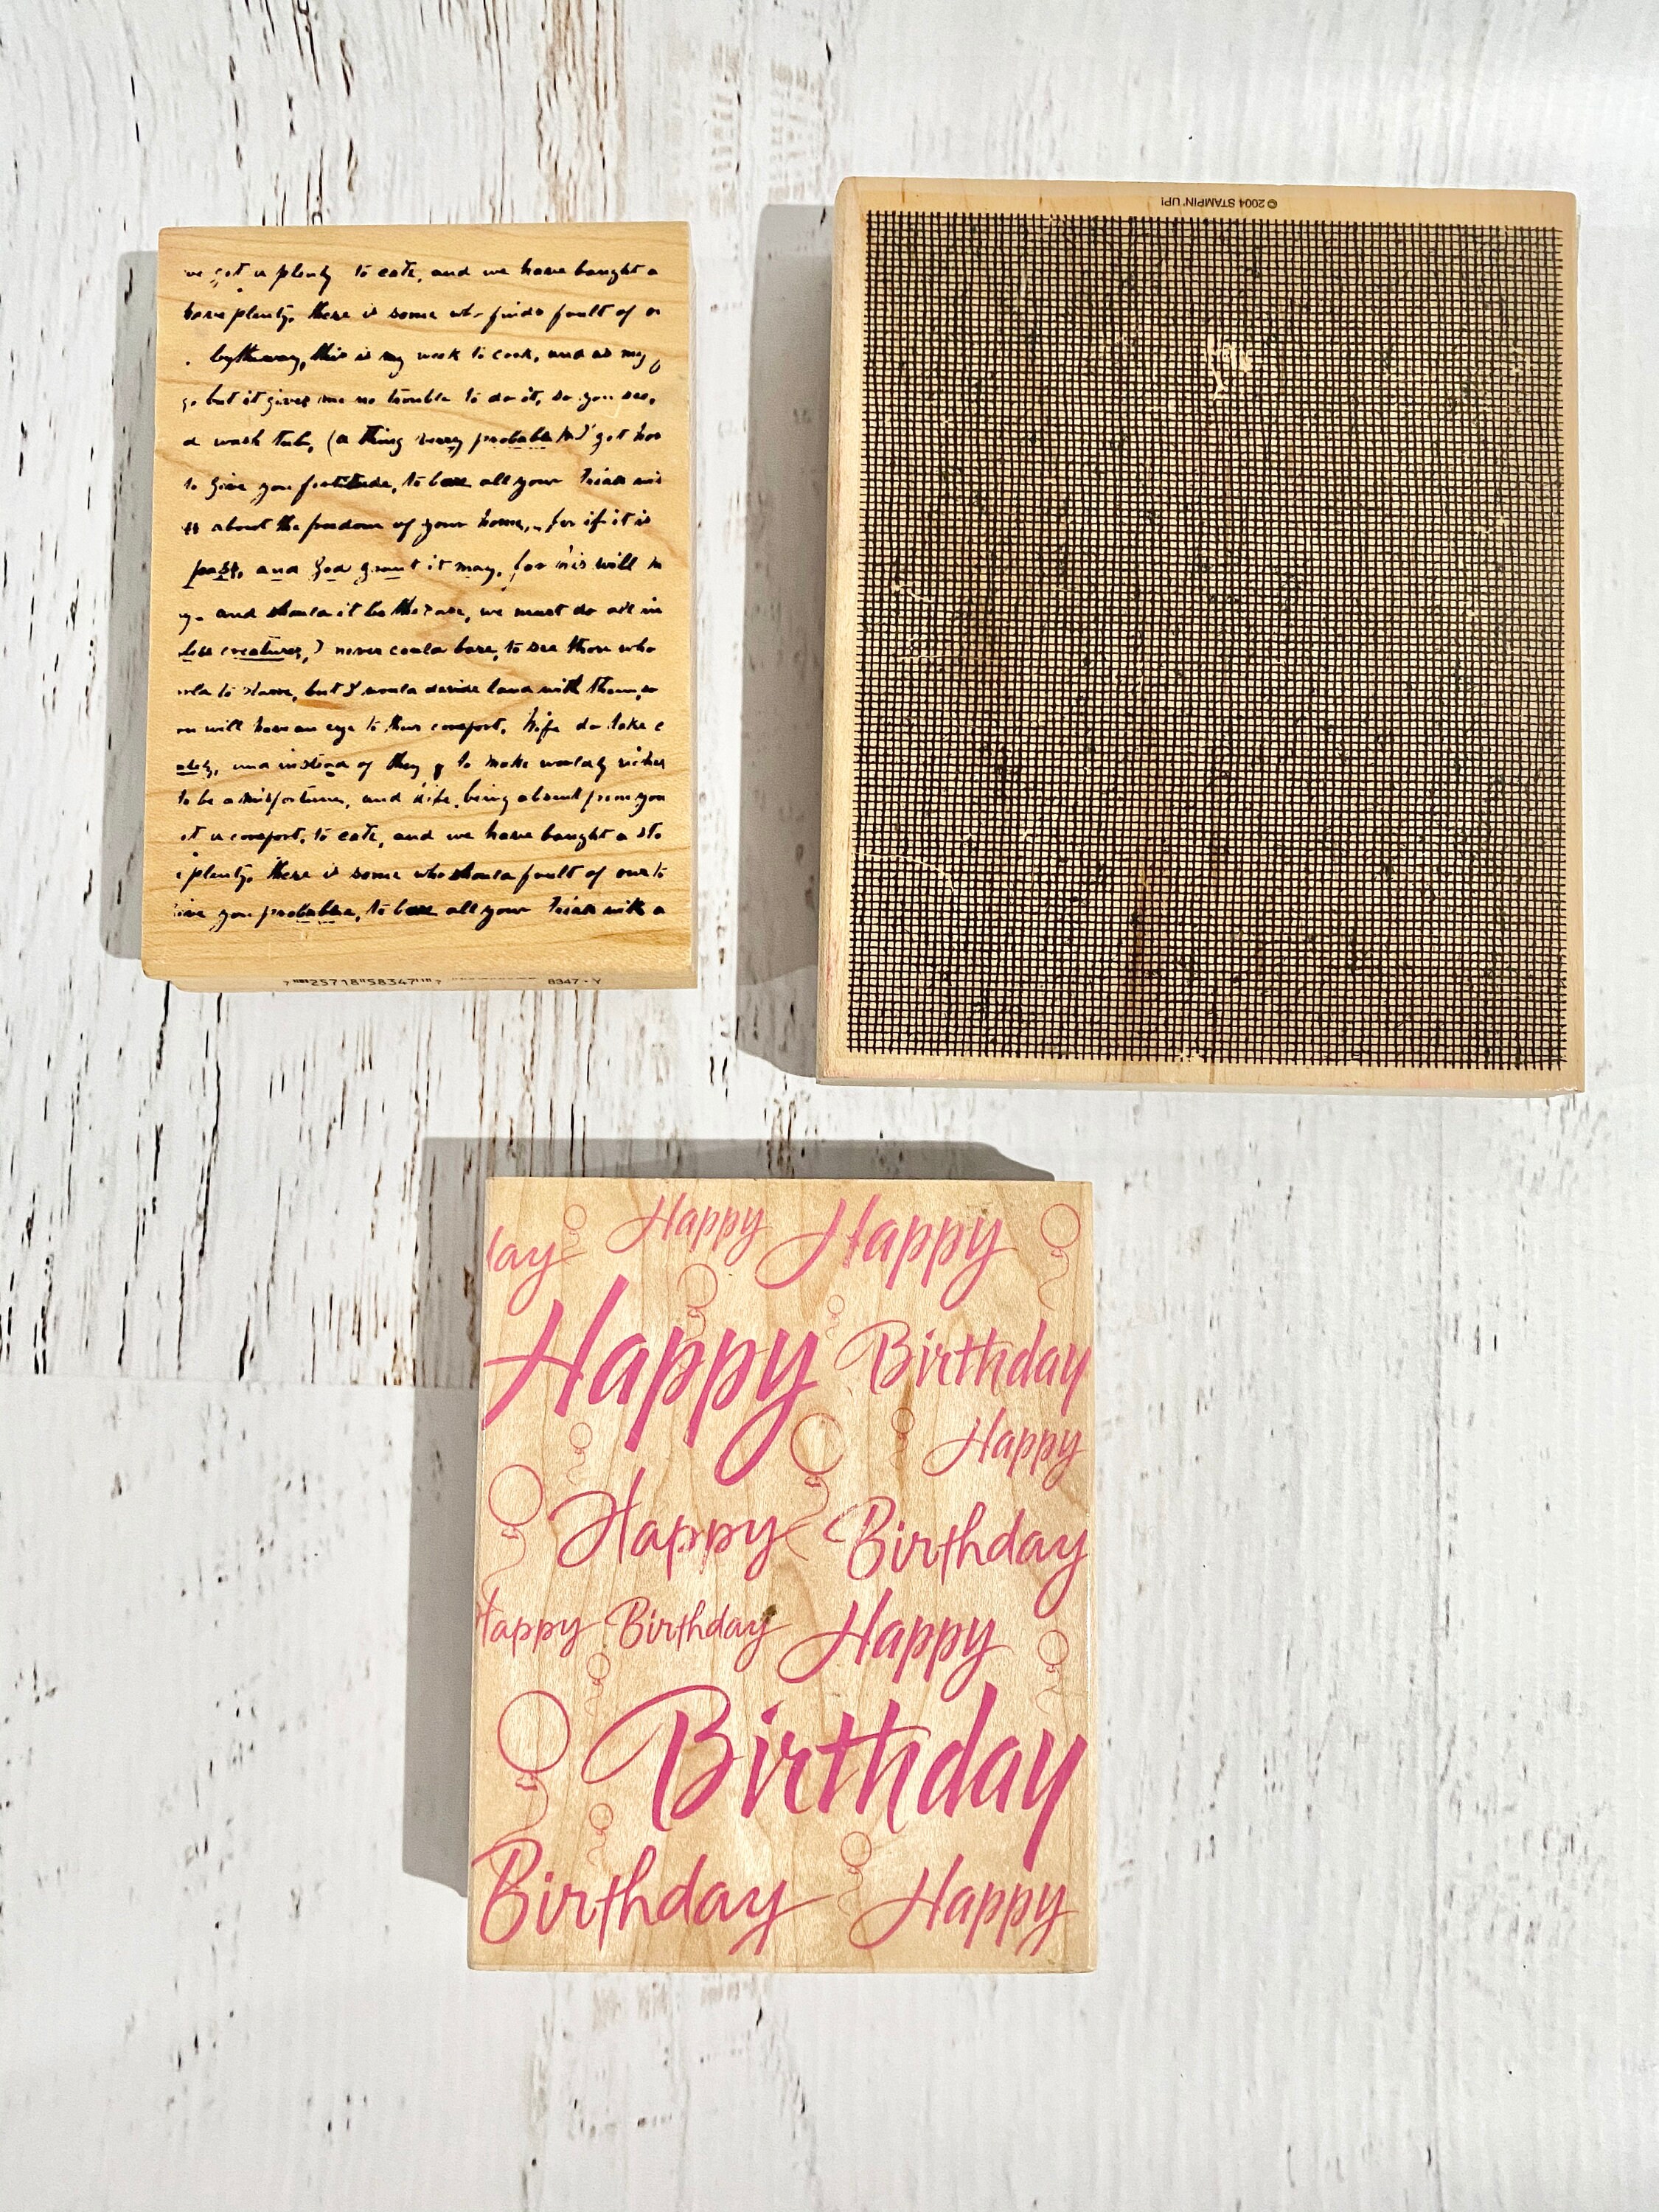 got a plenty to eate, and we have baught a
plenty, there is some who finds fault of
by the way, this is my week to cook, and as my
but it gives me no trouble to do it, so you see,
a wash tub, (a thing very probable
to give you fortitude, to bare all your trials
about the freedom of your home, for if it is
past, and God grant it may, for
and should it be the case, we must do all in
creatures, I never could bare, to see those who
to starve, but I would devide land with them, so
will have an eye to their comfort. Wife do take
and instead of they to make worldly riches
to be a misfortune, and Wife, being absent from you
comfort, to eate, and we have baught a sto
plenty, there is some who should fault of our to
give you probable, to bare all your trials with a
7 25718 58347 7 8347 - Y
© 2004 STAMPIN' UP!
day Happy Happy
Happy Birthday
Happy
Happy Birthday
Happy Birthday Happy
Birthday
Birthday Happy